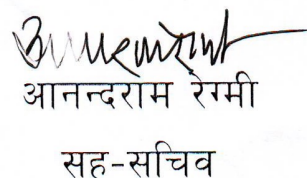 आनन्दराम रेग्मी
सह-सचिव